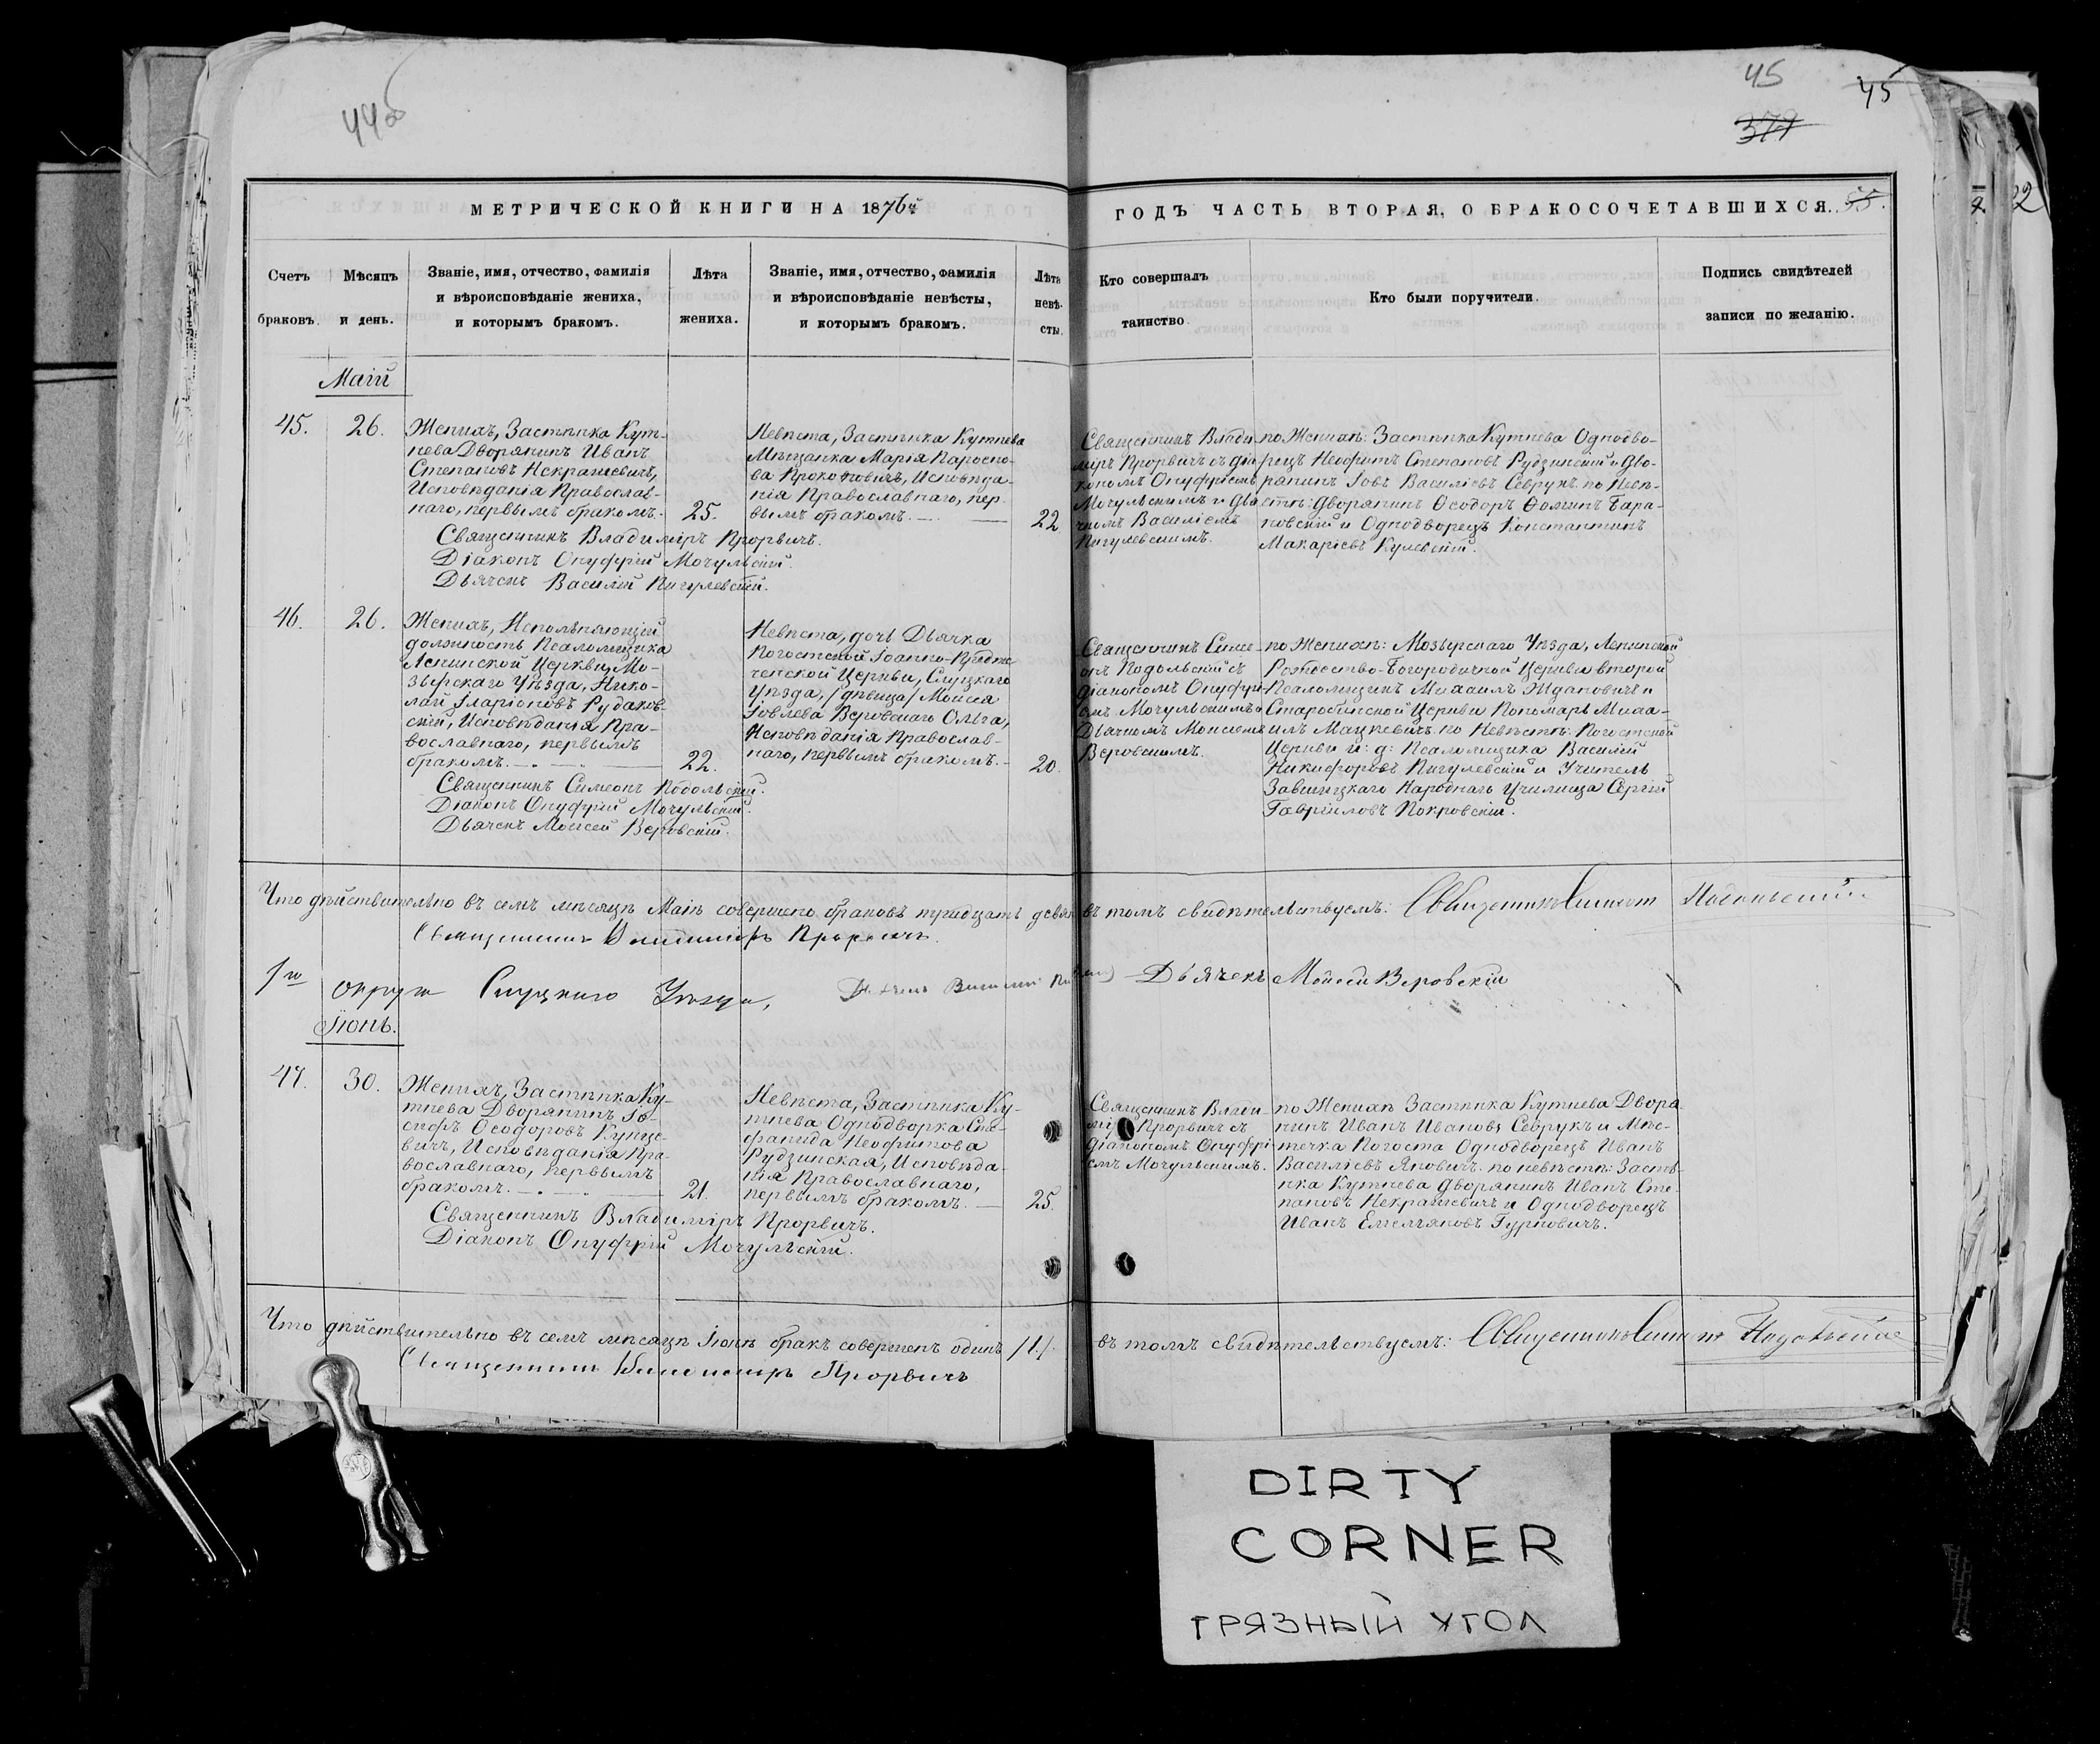 44об
45
45
379
МЕТРИЧЕСКОЙ КНИГИ НА 1876й
ГОДЪ ЧАСТЬ ВТОРАЯ, О БРАКОСОЧЕТАВШИХСЯ.
55.
22
Счетъ браковъ.
Мѣсяцъ и день.
Званіе, имя, отчество, фамилія
и вѣроисповѣданіе жениха,
и которымъ бракомъ.
Лѣта
жениха.
Званіе, имя, отчество, фамилія
и вѣроисповѣданіе невѣсты,
и которымъ бракомъ.
Лѣта
невѣ-
сты.
Кто совершалъ
таинство.
Кто были поручители.
Подпись свидѣтелей
записи по желанію.
Маій
45.
26.
Женихъ, Застѣнка Кут-
нева Дворянинъ Иванъ
Степановъ Некрашевичъ,
Исповѣданія Православ-
наго, первымъ бракомъ.
25.
Невѣста, Застѣнка Кутнева
Мѣщанка Марія Паросно-
ва Прокоповичъ, Исповѣда-
нія Православнаго, пер-
вымъ бракомъ.
22
Священникъ Влади-
міръ Прорвичъ съ Діа-
кономъ Онуфріемъ
Мочульскимъ и Дья-
чкомъ Василіемъ
Пигулевскимъ.
по Женихѣ: Застѣнка Кутнева Однодво-
рецъ Неофитъ Степановъ Рудзинскій и Дво-
рянинъ Іовъ Василіевъ Севрукъ. по Невѣ-
стѣ: Дворянинъ Ѳеодоръ Ѳоминъ Бара-
новскій и Однодворецъ Константинъ
Макаріевъ Кулевскій.
Священникъ Владиміръ Прорвичъ.
Діаконъ Онуфрій Мочульскій.
Дьячекъ Василій Пигулевскій.
46.
26.
Женихъ, Исполняющій
должность Псаломщика
Ленинской Церкви, Мо-
зырскаго Уѣзда, Нико-
лай Іларіоновъ Рудаков-
скій, Исповѣданія Пра-
вославнаго, первымъ
бракомъ.
22.
Невѣста, дочь Дьячка
Погостской Іоанно-Предте-
ченской Церкви, Слуцкаго
Уѣзда, /девица/ Моисея
Іовлева Вѣровскаго Ольга,
Исповѣданія Православ-
наго, первымъ бракомъ.
20.
Священникъ Симе-
онъ Подольскій съ
Діакономъ Онуфрі-
емъ Мочульскимъ и
Дьячкомъ Моисеемъ
Вѣровскимъ.
по Женихѣ: Мозырскаго Уѣзда, Ленинской
Рождество-Богородичной Церкви второй
Псаломщикъ Михаилъ Ждановичъ и
Старобинской Церкви Пономарь Миха-
илъ Мацкевичъ. по Невѣстѣ: Погостской
Церкви и: д: Псаломщика Василій
Никифоровъ Пигулевскій и Учитель
Завшицкаго Народнаго Училища Сергій
Гавріиловъ Покровскій.
Священникъ Симеонъ Подольскій.
Діаконъ Онуфрій Мочульскій.
Дьячекъ Моисей Вѣровскій.
Что дѣйствительно въ семъ мѣсяцѣ Маіѣ совершено браковъ тридцать девят въ томъ свидѣтельствуемъ: Священникъ Симеонъ Подольскій
Священникъ Владиміръ Прорвичъ.
1го округа Слуцкаго Уѣзда, Дьячекъ Василій Дьячекъ Мойсей Веровскій
Іюнь.
47.
30.
Женихъ, Застѣнка Ку-
тнева Дворянинъ Іо-
сифъ Ѳеодоровъ Кунце-
вичъ, Исповѣданія Пра-
вославнаго, первымъ
бракомъ.
21.
Невѣста, Застѣнка Ку-
тнева Однодворка Сте-
фанида Неофитова
Рудзинская, Исповѣда-
нія Православнаго,
первымъ бракомъ.
25.
Священникъ Влади-
міръ Прорвичъ съ
Діакономъ Онуфрі-
емъ Мочульскимъ.
по Женихѣ Застѣнка Кутнева Дворя-
нинъ Иванъ Ивановъ Севрукъ и Мѣс-
течка Погоста Однодворецъ Иванъ
Василіевъ Яновичъ. по невѣстѣ: Застѣ-
нка Кутнева Дворянинъ Иванъ Сте-
пановъ Некрашевичъ и Однодворецъ
Иванъ Емельяновъ Гуриновичъ.
Священникъ Владиміръ Прорвичъ.
Діаконъ Онуфрій Мочульскій.
Что дѣйствительно въ семъ мѣсяцѣ Іюнѣ бракъ совершенъ одинъ /1./ въ томъ свидѣтельствуемъ: Священникъ Симеонъ Подольскій
Священникъ Владиміръ Прорвичъ
DIRTY
CORNER
ГРЯЗНЫЙ УГОЛ